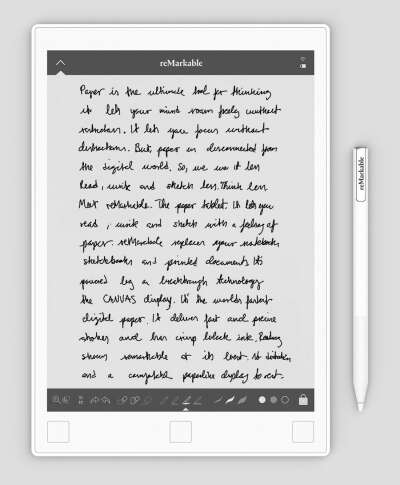 reMarkable
Paper is the ultimate tool for thinking
it lets your mind roam freely without
restrictions. It lets you focus without
distractions. But, paper is disconnected from
the digital world. So, we use it less
Read, write and sketch less. Think less.
Meet reMarkable. The paper tablet. It lets you
read, write and sketch with a feeling of
paper. reMarkable replaces your notebooks
sketchbooks and printed documents. It's
powered by a breakthrough technology
the CANVAS display. It's the world's fastest
digital paper. It delivers fast and precise
strokes and has crisp black ink. Reading
shows remarkable at its best. No
and a complete paperlike display to rest.
reMarkable